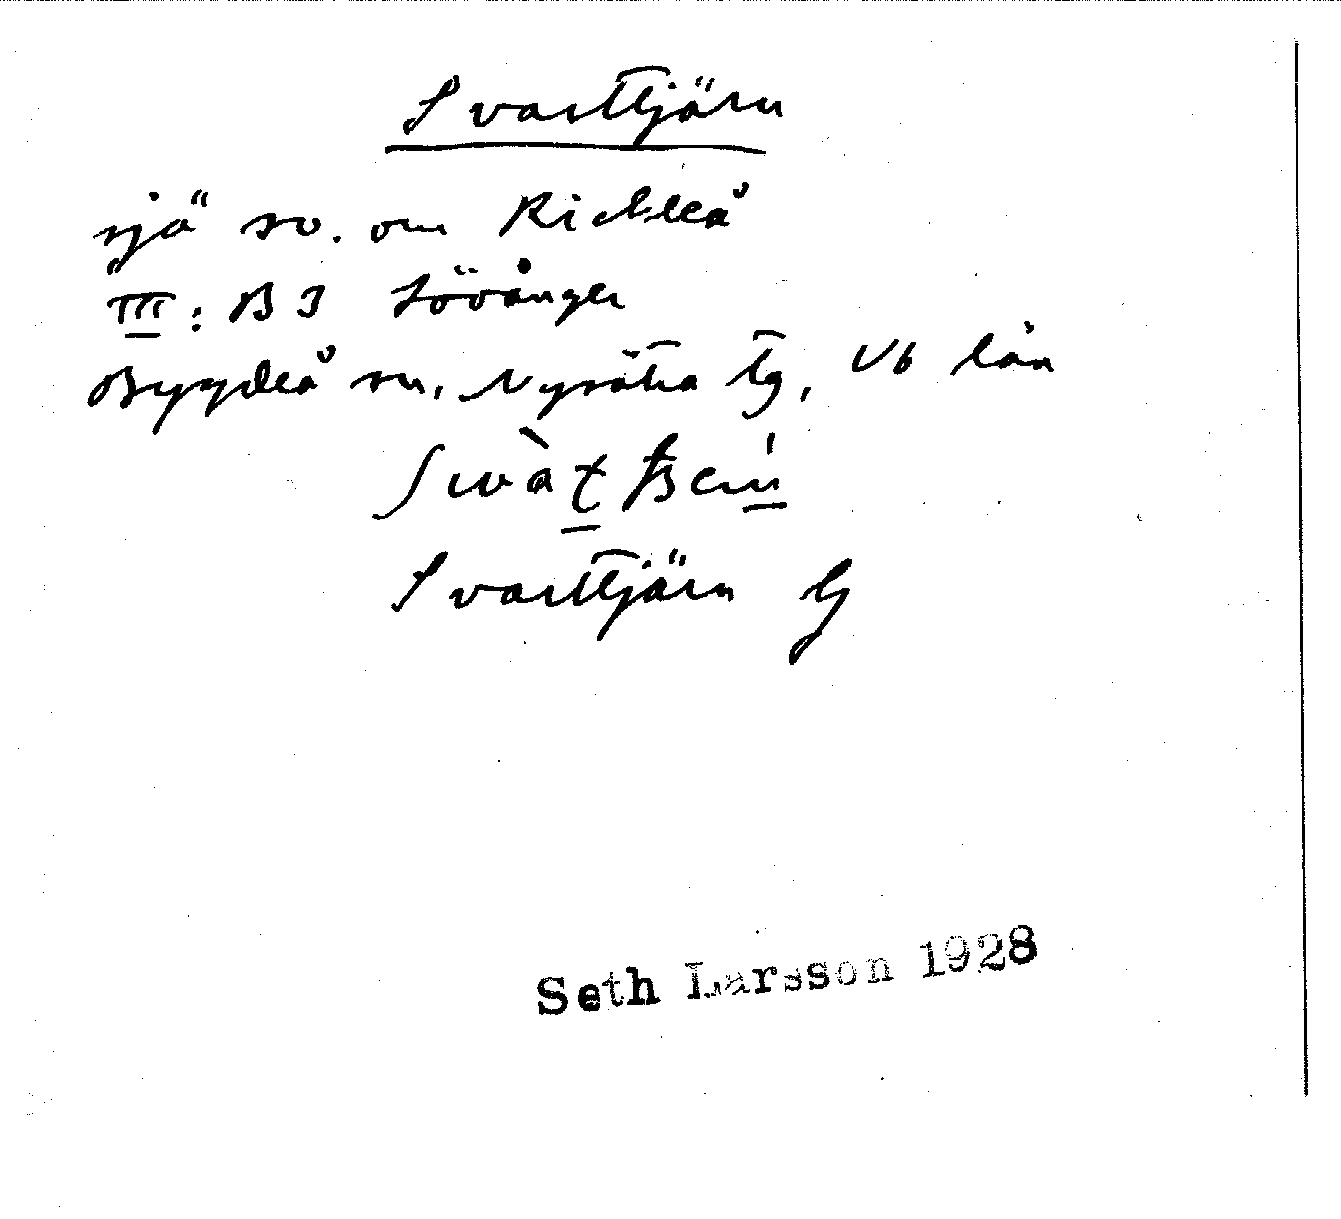 Svarttjärn
sjö so. om Rickleå
III: B3 Lövånger
Bygdeå sn, Nysätra tg, Vb län
Svarttjärn Lj
Seth Larsson 1928